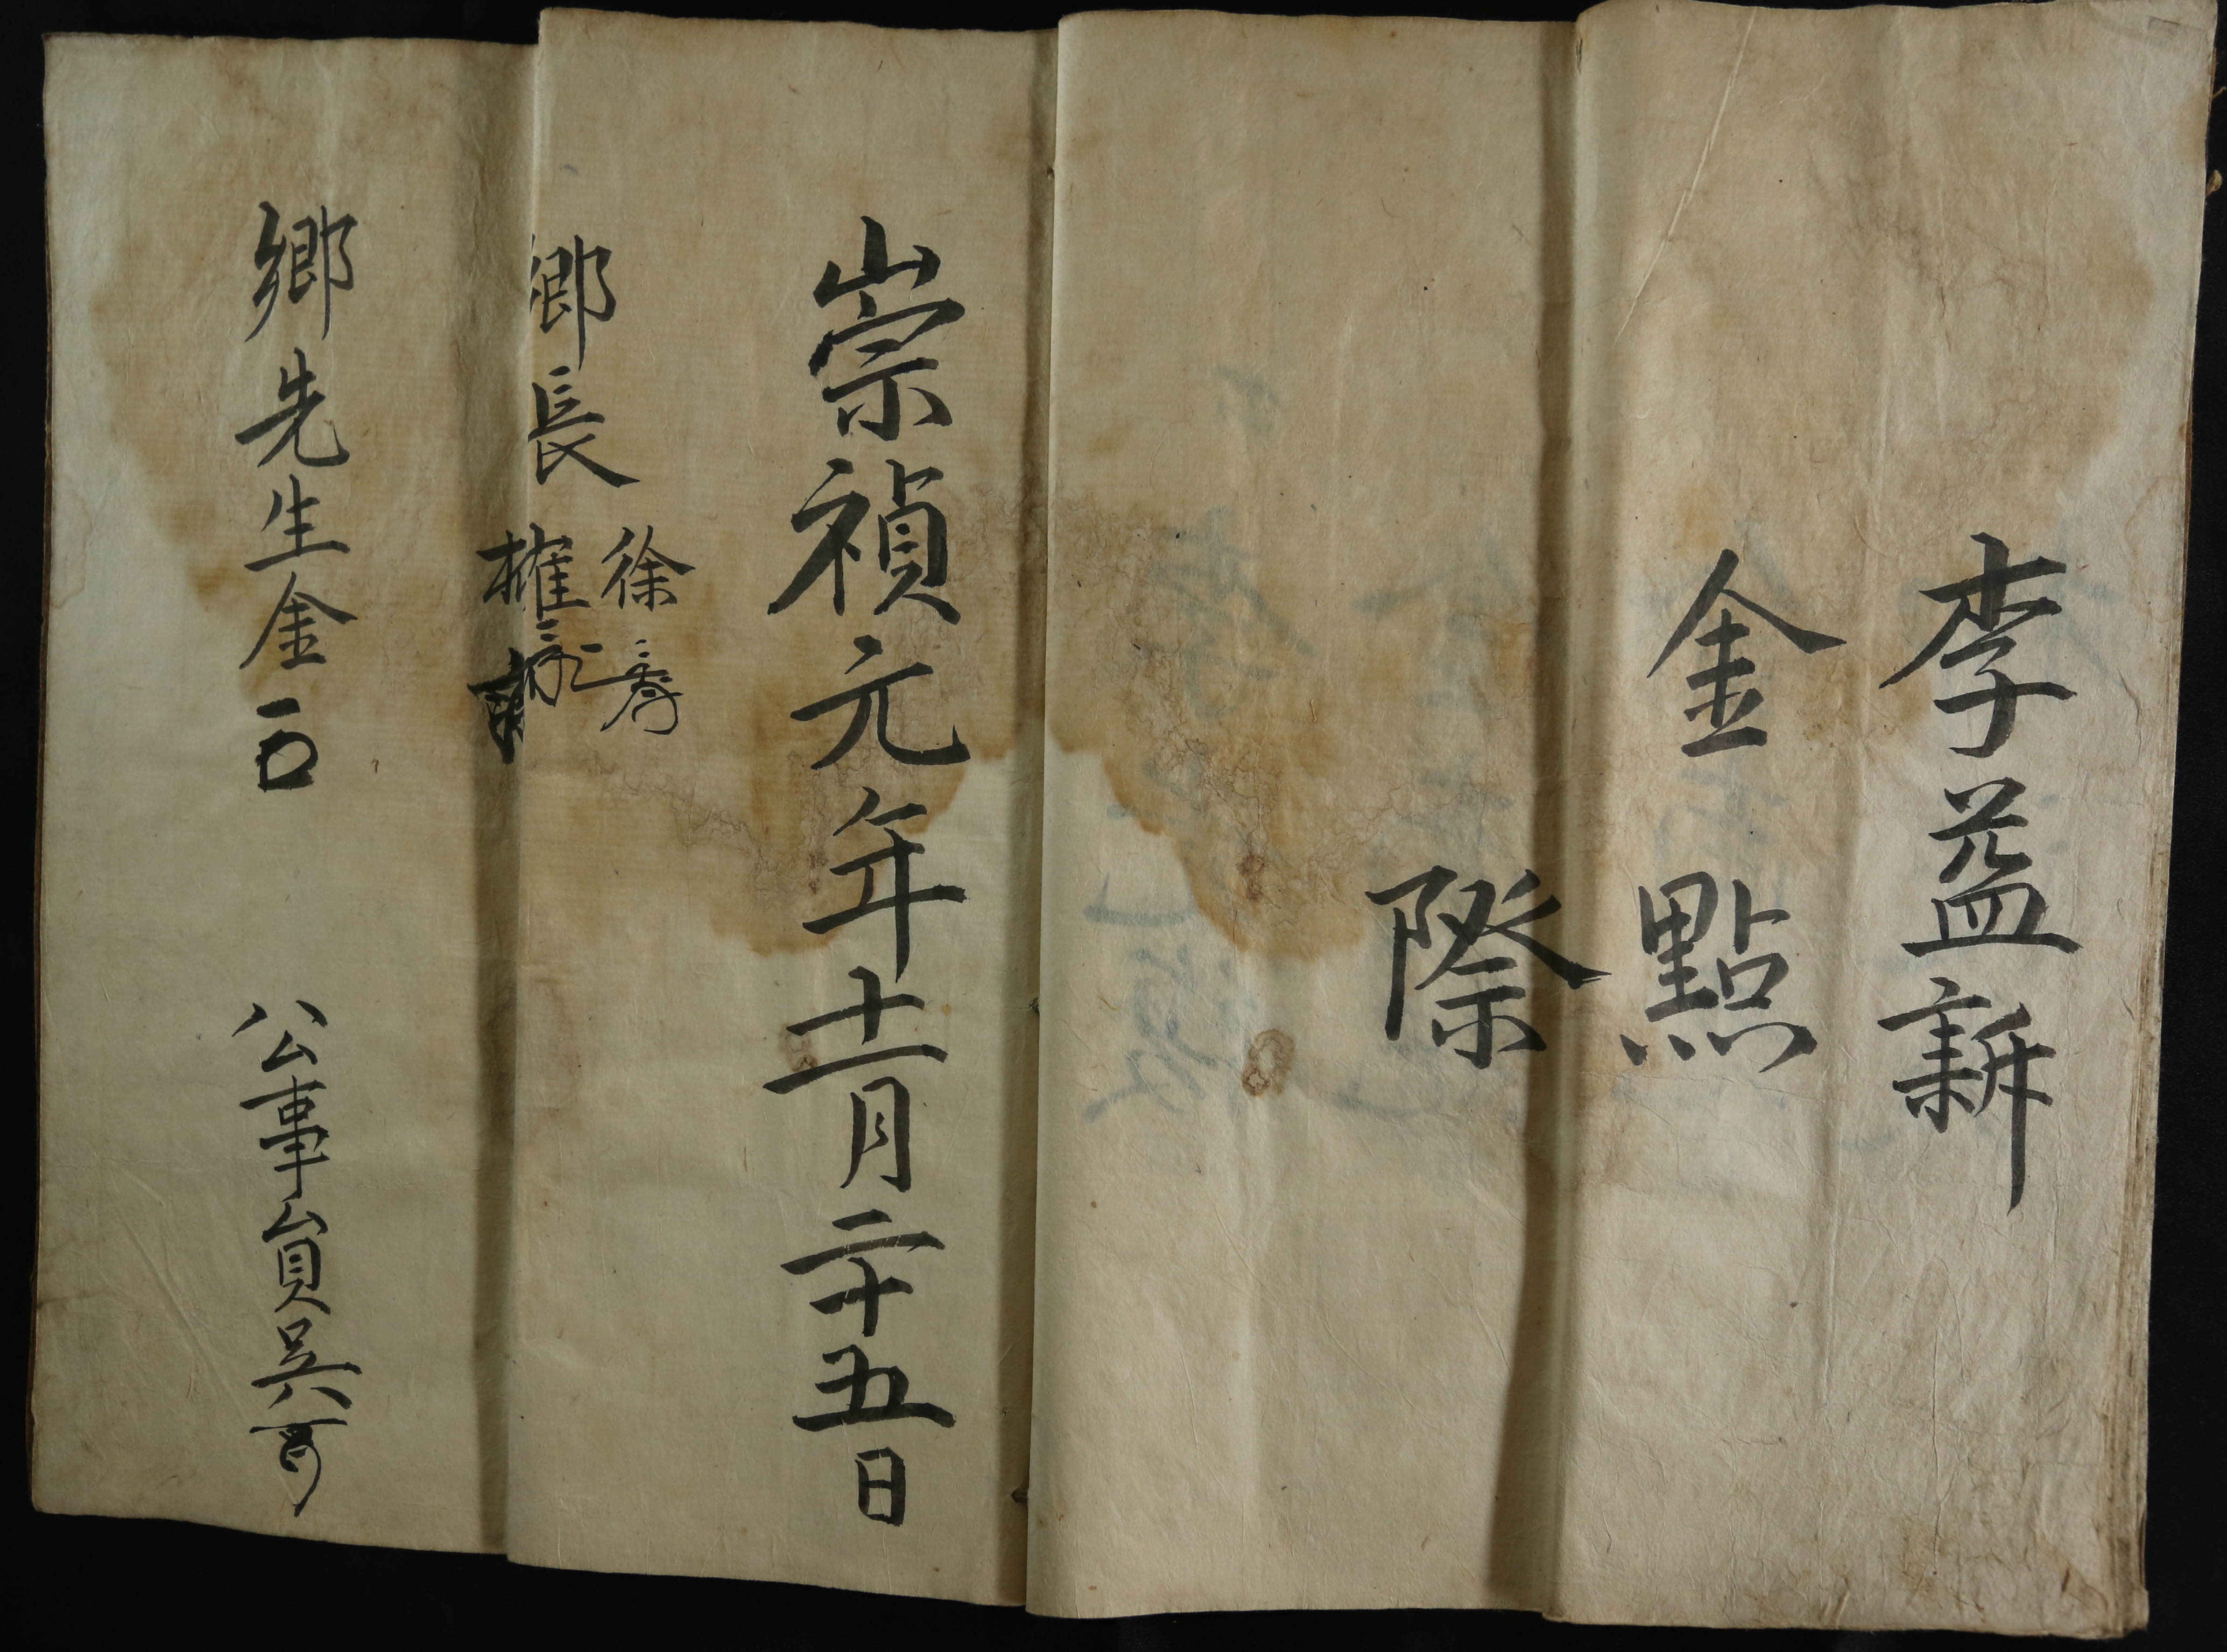 李益訢
金點
際
崇禎元年十二月二十五日
鄕長 徐
權
鄕先生金
公事員吳